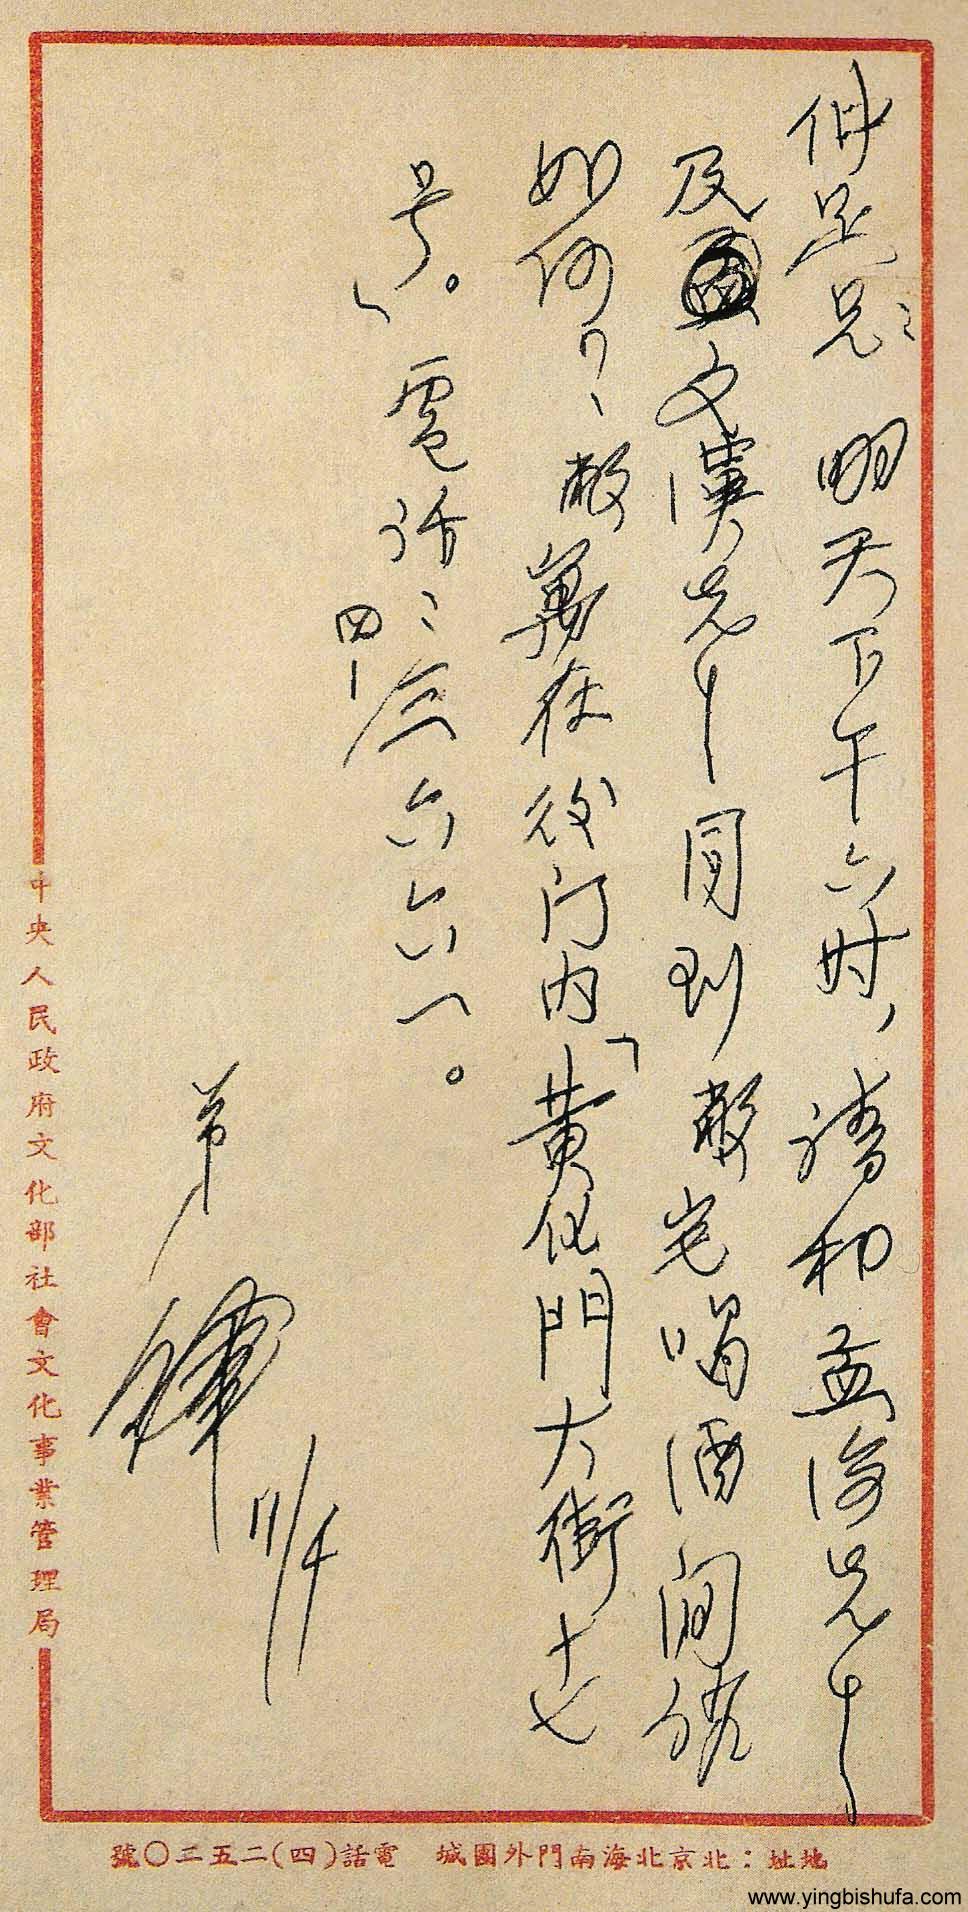 仲足兄：明天下午六时，请和孟海兄等
及文漢兄等同到敝宅喝酒閒談
如何？敝寓在後门内「黄化門大街十七
号」。電话：四一三六六一。
弟
鐸
11/4
中央人民政府文化部社會文化事業管理局
地址：北京北海南門外團城 電話(四)二五三〇號
www.yingbishufa.com